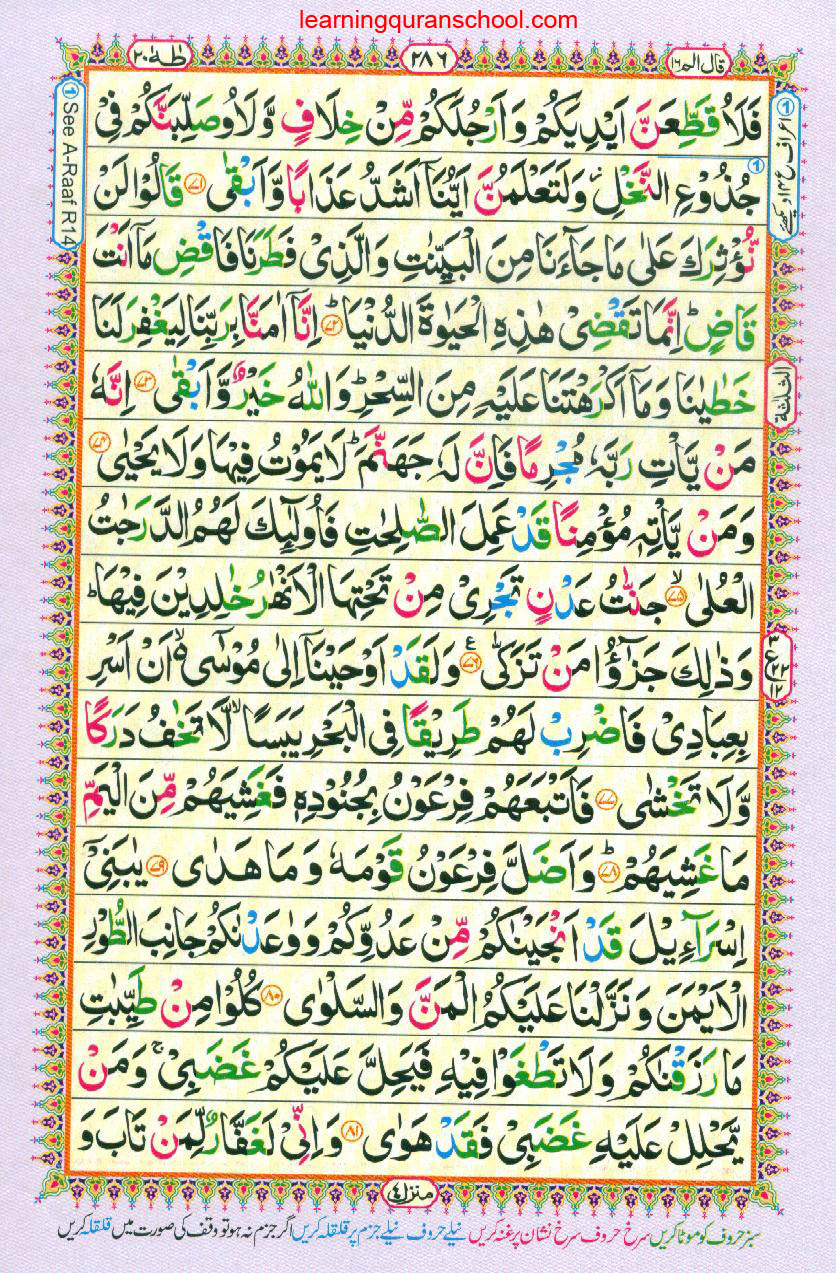 learningquranschool.com
طٰهٰ ٢٠
٢٨٦
قال الم ١٦
فَلَاُ قَطِّعَنَّ اَيْدِيَكُمْ وَاَرْجُلَكُمْ مِّنْ خِلَافٍ وَّلَاُوصَلِّبَنَّكُمْ فِىْ
جُذُوْعِ النَّخْلِ ۫ وَلَتَعْلَمُنَّ اَيُّنَاۤ اَشَدُّ عَذَابًا وَّاَبْقٰى ﴿٧١﴾ قَالُوْا لَنْ
نُّؤْثِرَكَ عَلٰى مَا جَآءَنَا مِنَ الْبَيِّنٰتِ وَالَّذِىْ فَطَرَنَا فَاقْضِ مَاۤ اَنْتَ
قَاضٍ ؕ اِنَّمَا تَقْضِىْ هٰذِهِ الْحَيٰوةَ الدُّنْيَا ؕ ﴿٧٢﴾ اِنَّاۤ اٰمَنَّا بِرَبِّنَا لِيَغْفِرَ لَنَا
خَطٰيٰنَا وَمَاۤ اَكْرَهْتَنَا عَلَيْهِ مِنَ السِّحْرِ ؕ وَاللّٰهُ خَيْرٌ وَّاَبْقٰى ﴿٧٣﴾ اِنَّهٗ
مَنْ يَّاْتِ رَبَّهٗ مُجْرِمًا فَاِنَّ لَهٗ جَهَنَّمَ ؕ لَا يَمُوْتُ فِيْهَا وَلَا يَحْيٰى ﴿٧٤﴾
وَمَنْ يَّاْتِهٖ مُؤْمِنًا قَدْ عَمِلَ الصّٰلِحٰتِ فَاُولٰٓئِكَ لَهُمُ الدَّرَجٰتُ
الْعُلٰى ۙ ﴿٧٥﴾ جَنّٰتُ عَدْنٍ تَجْرِىْ مِنْ تَحْتِهَا الْاَنْهٰرُ خٰلِدِيْنَ فِيْهَا ؕ
وَذٰلِكَ جَزٰٓؤُا مَنْ تَزَكّٰى ﴿٧٦﴾ ع وَلَقَدْ اَوْحَيْنَاۤ اِلٰى مُوْسٰٓى ۙ اَنْ اَسْرِ
بِعِبَادِىْ فَاضْرِبْ لَهُمْ طَرِيْقًا فِى الْبَحْرِ يَبَسًا ۙ لَّا تَخٰفُ دَرَكًا
وَّلَا تَخْشٰى ﴿٧٧﴾ فَاَتْبَعَهُمْ فِرْعَوْنُ بِجُنُوْدِهٖ فَغَشِيَهُمْ مِّنَ الْيَمِّ
مَا غَشِيَهُمْ ؕ ﴿٧٨﴾ وَاَضَلَّ فِرْعَوْنُ قَوْمَهٗ وَمَا هَدٰى ﴿٧٩﴾ يٰبَنِىْۤ
اِسْرَآءِيْلَ قَدْ اَنْجَيْنٰكُمْ مِّنْ عَدُوِّكُمْ وَوٰعَدْنٰكُمْ جَانِبَ الطُّوْرِ
الْاَيْمَنَ وَنَزَّلْنَا عَلَيْكُمُ الْمَنَّ وَالسَّلْوٰى ﴿٨٠﴾ كُلُوْا مِنْ طَيِّبٰتِ
مَا رَزَقْنٰكُمْ وَلَا تَطْغَوْا فِيْهِ فَيَحِلَّ عَلَيْكُمْ غَضَبِىْ ۚ وَمَنْ
يَّحْلِلْ عَلَيْهِ غَضَبِىْ فَقَدْ هَوٰى ﴿٨١﴾ وَاِنِّىْ لَغَفَّارٌ لِّمَنْ تَابَ وَ
① See A-Raaf R14
الثلثة
منزل ٤
سبز حروف کو موٹا کریں سرخ حروف سرخ نشان پر غنہ کریں نیلے حروف نیلے جزم پر قلقلہ کریں اگر جزم نہ ہو تو وقف کی صورت میں قلقلہ کریں